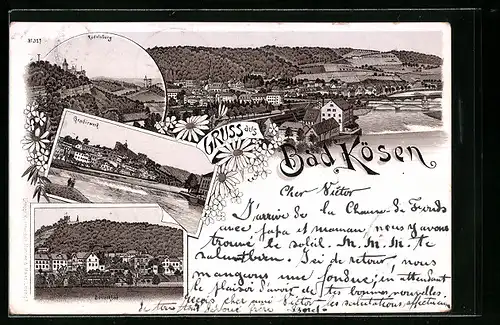 Rudelsburg
GRUSS aus
Bad Kösen
Cher Victor
J'arrive de la Chaux-de-Fonds
avec papa et maman, nous y avons
trouvé le soleil. M. M. M. te
saluent bien. Ici de retour, nous
mangeons une fondue, en attendant
le plaisir d'avoir de tes bonnes nouvelles.
Reçois cher ami Victor les salutations affectueuses
de ton